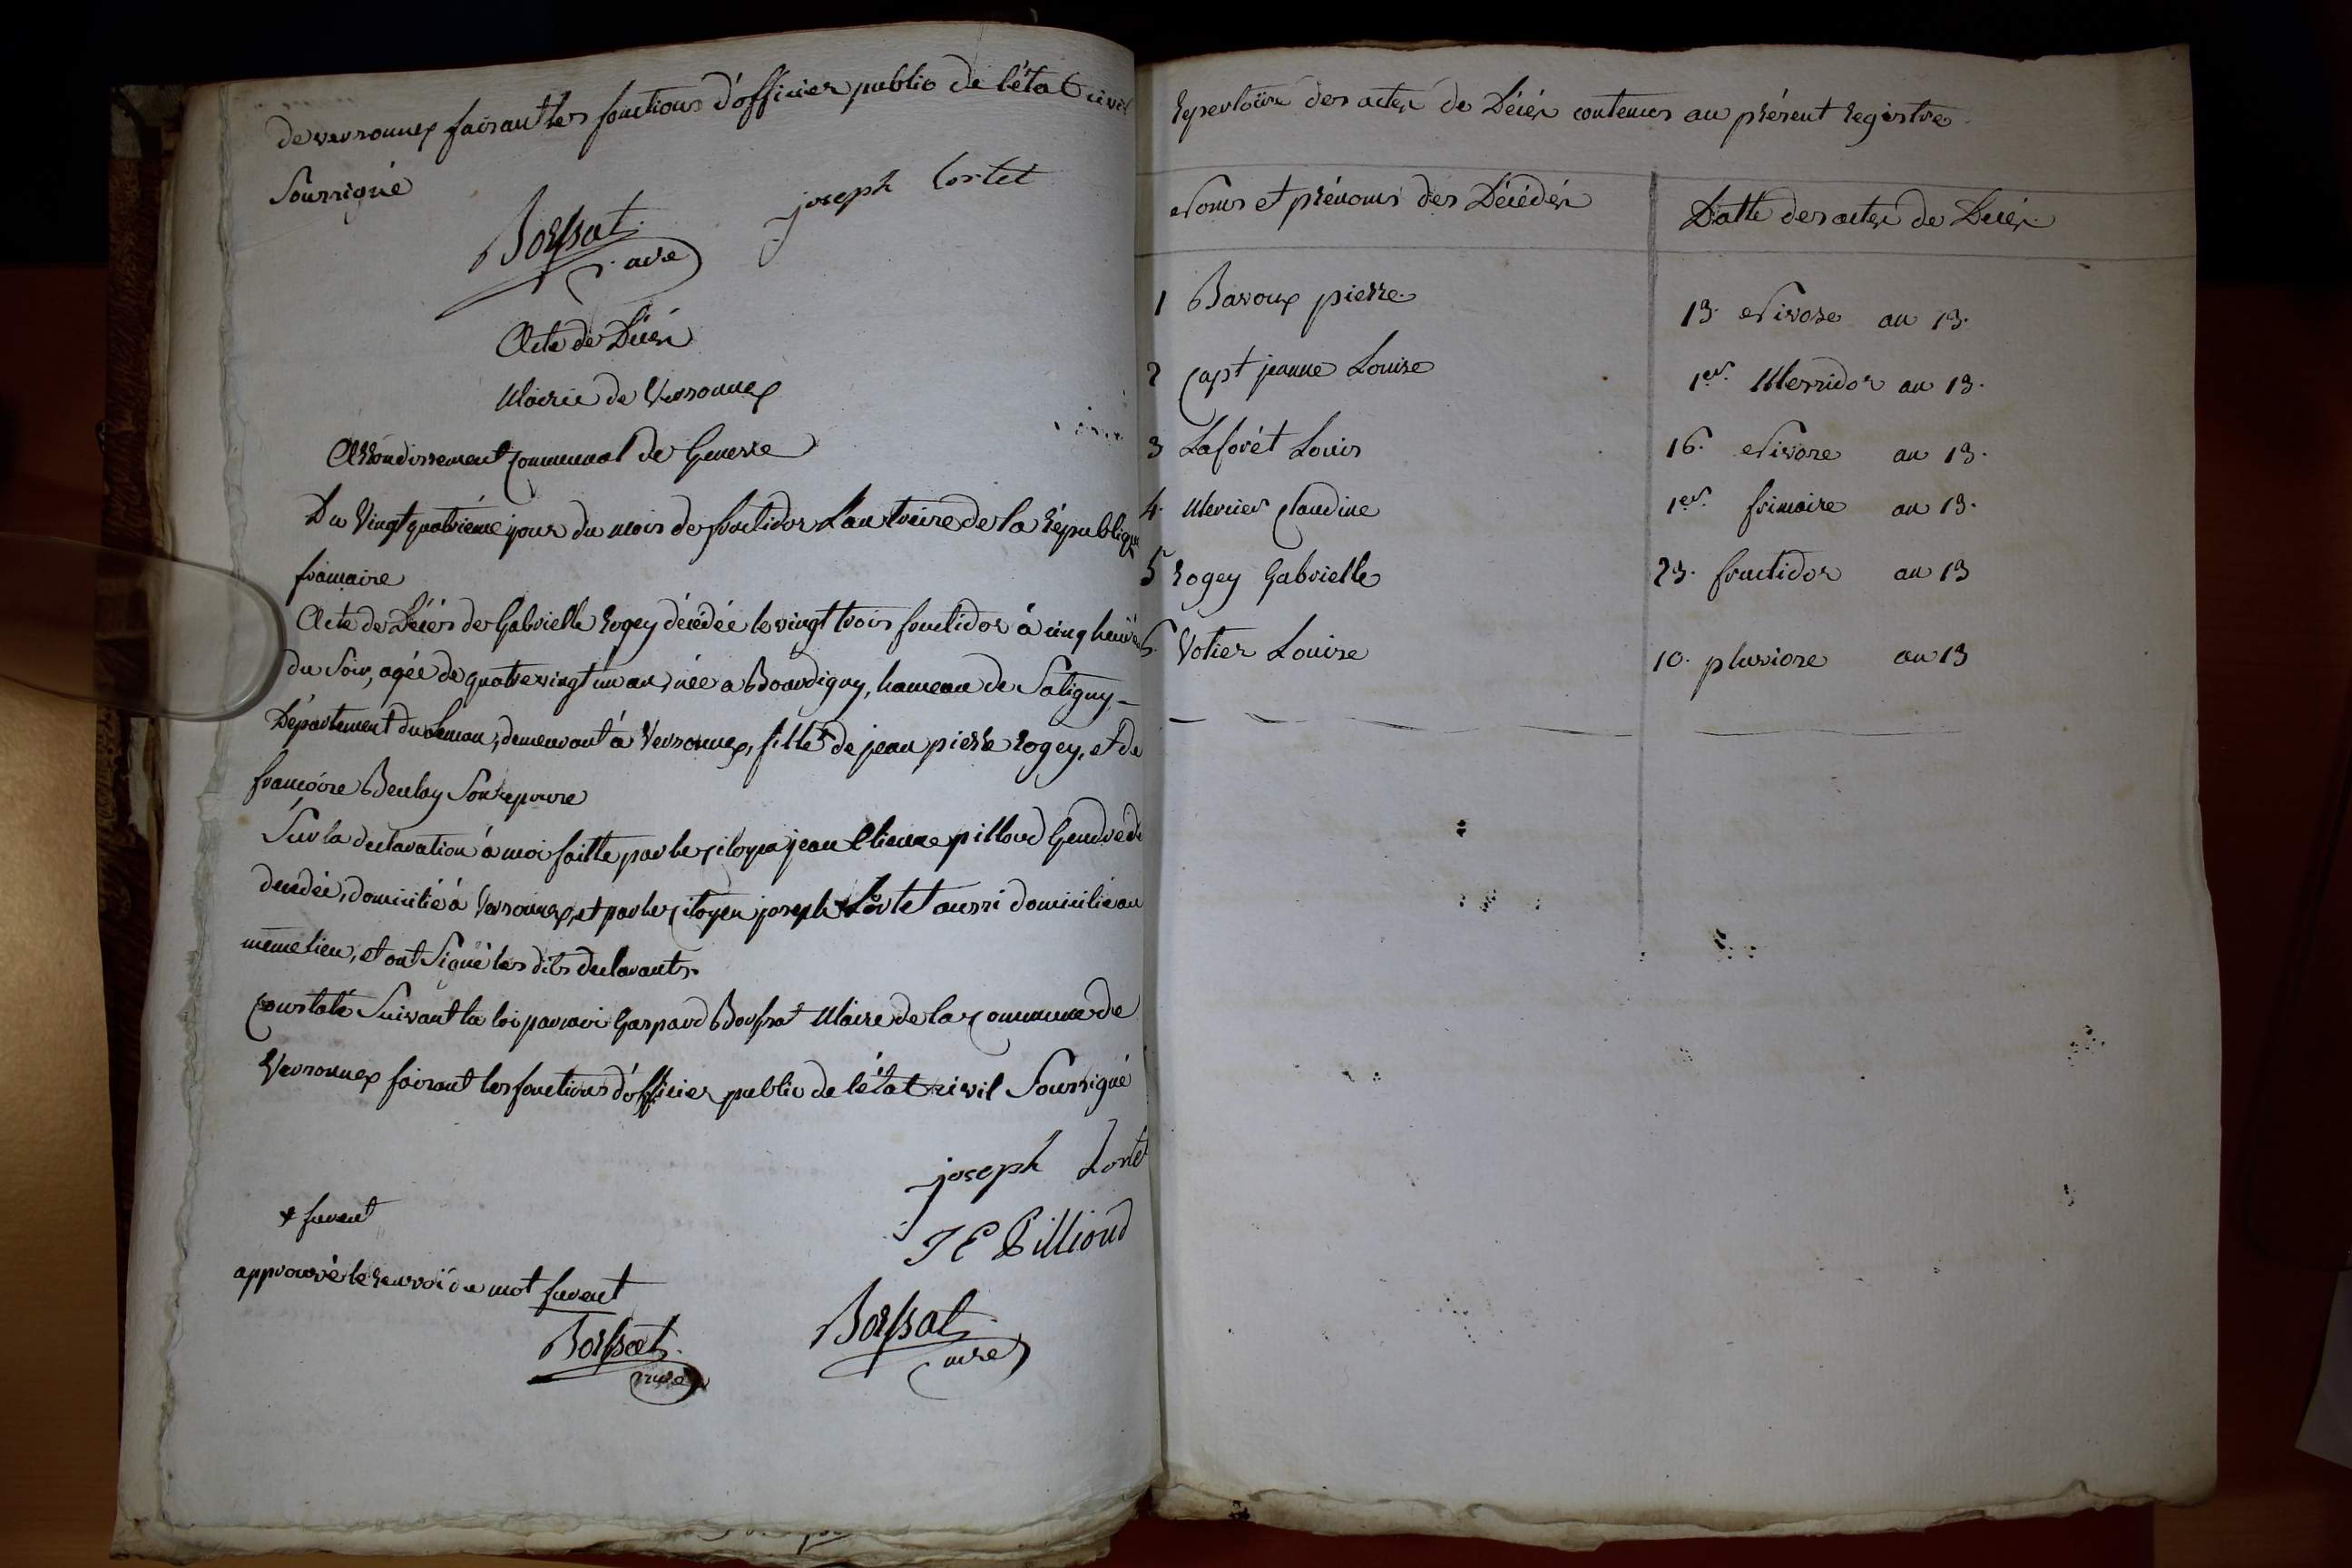 de versonnex faisant les fonctions d'officier public de l'état civil
Soussigné
joseph Lortet
Borssat
maire
Acte de Décès
Mairie de Versonnex
Arrondissement Communal de Geneve
Du Vingt quatrième jour du mois de fructidor L'an treize de la République
francaise
Acte de Décès de Gabrielle Rogey décédée le vingt trois fructidor à cinq heures
du Soir, agée de quatre vingt un an, née a Bourdigny, hameau de Satigny –
Département du Leman, demeurant à Versonnex, fille de jean pierre Rogey, et de
francoise
Son epouse
Sur la declaration à moi faitte par le Citoyen jean Etienne pilloud Gendre de
decedée, domicilié à Versonnex, et par le Citoyen joseph * Lortet aussi domicilié au
même lieu, et ont Signé les dits declarants.
Constaté Suivant la loi par moi Gaspard Borssat Maire de la Commune de
Versonnex faisant les fonctions d'officier public de l'état civil Soussigné
joseph Lortet
J E Pillioud
* furent
approuvé le renvoi du mot furent
Borssat
maire
Borssat
maire
Repertoire des actes de Décès contenus au présent Registre
Noms et prénoms des Décédés
Datte des actes de Décès
1 Bavoux pierre
13. Nivose an 13.
2 Capt jeanne Louise
1er. Messidor an 13.
3 Laforét Louis
16. Nivose an 13.
4. Mercier Claudine
1er. frimaire an 13.
5 Rogey Gabrielle
23. fructidor an 13
6. Votier Louise
10. pluviose an 13